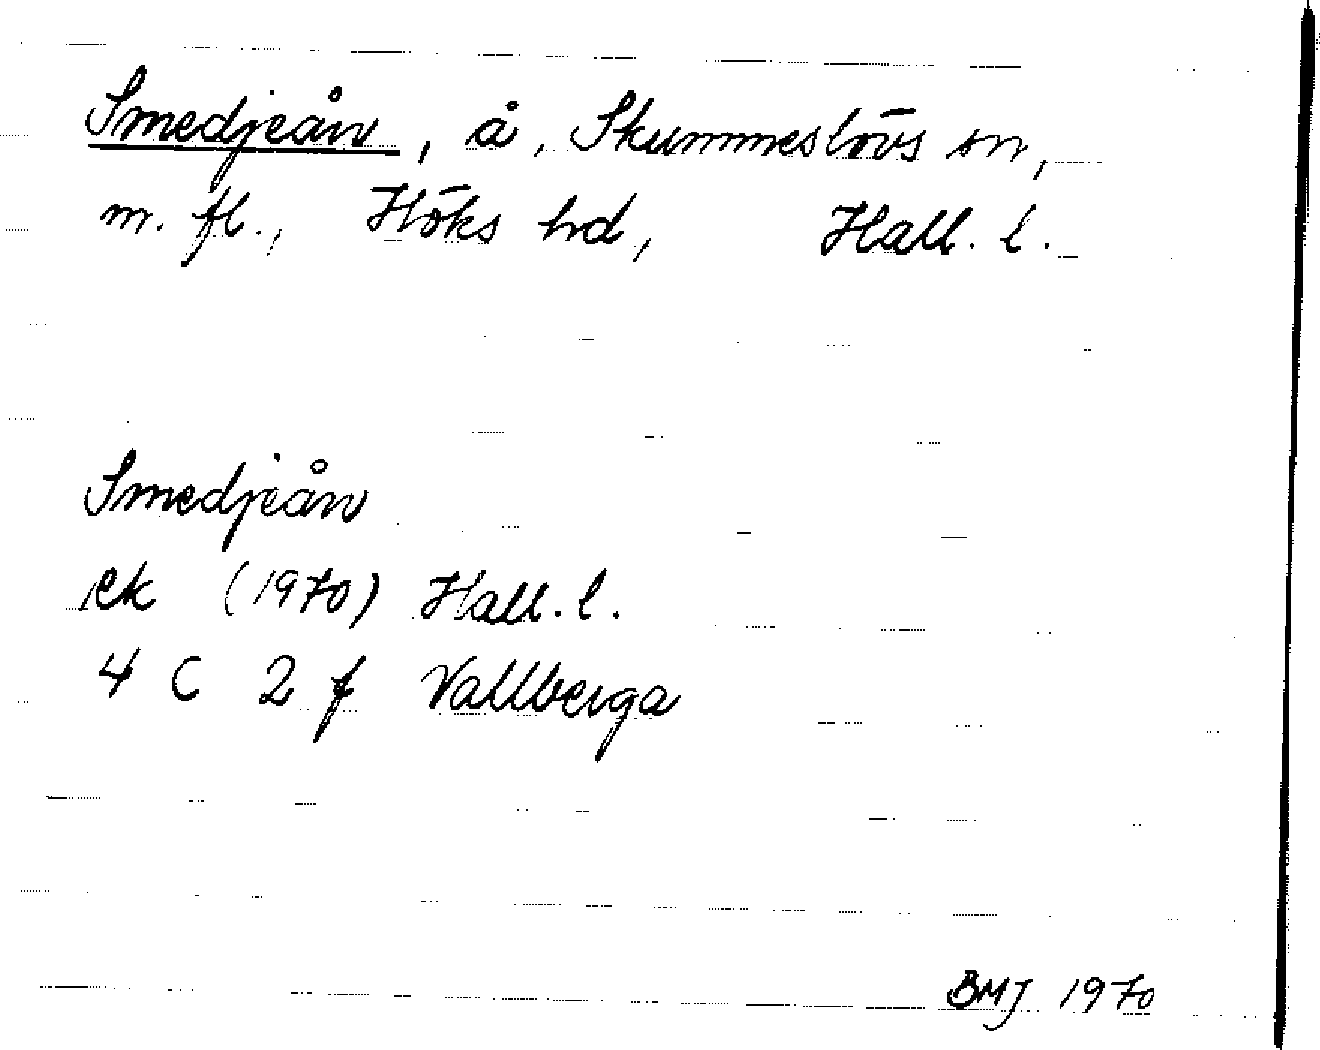 Smedjeån, å, Skummeslövs sn,
m. fl., Höks hd, Hall. l.
Smedjeån
ek (1970) Hall. l.
4 C 2 f Vallberga
BMJ 1970